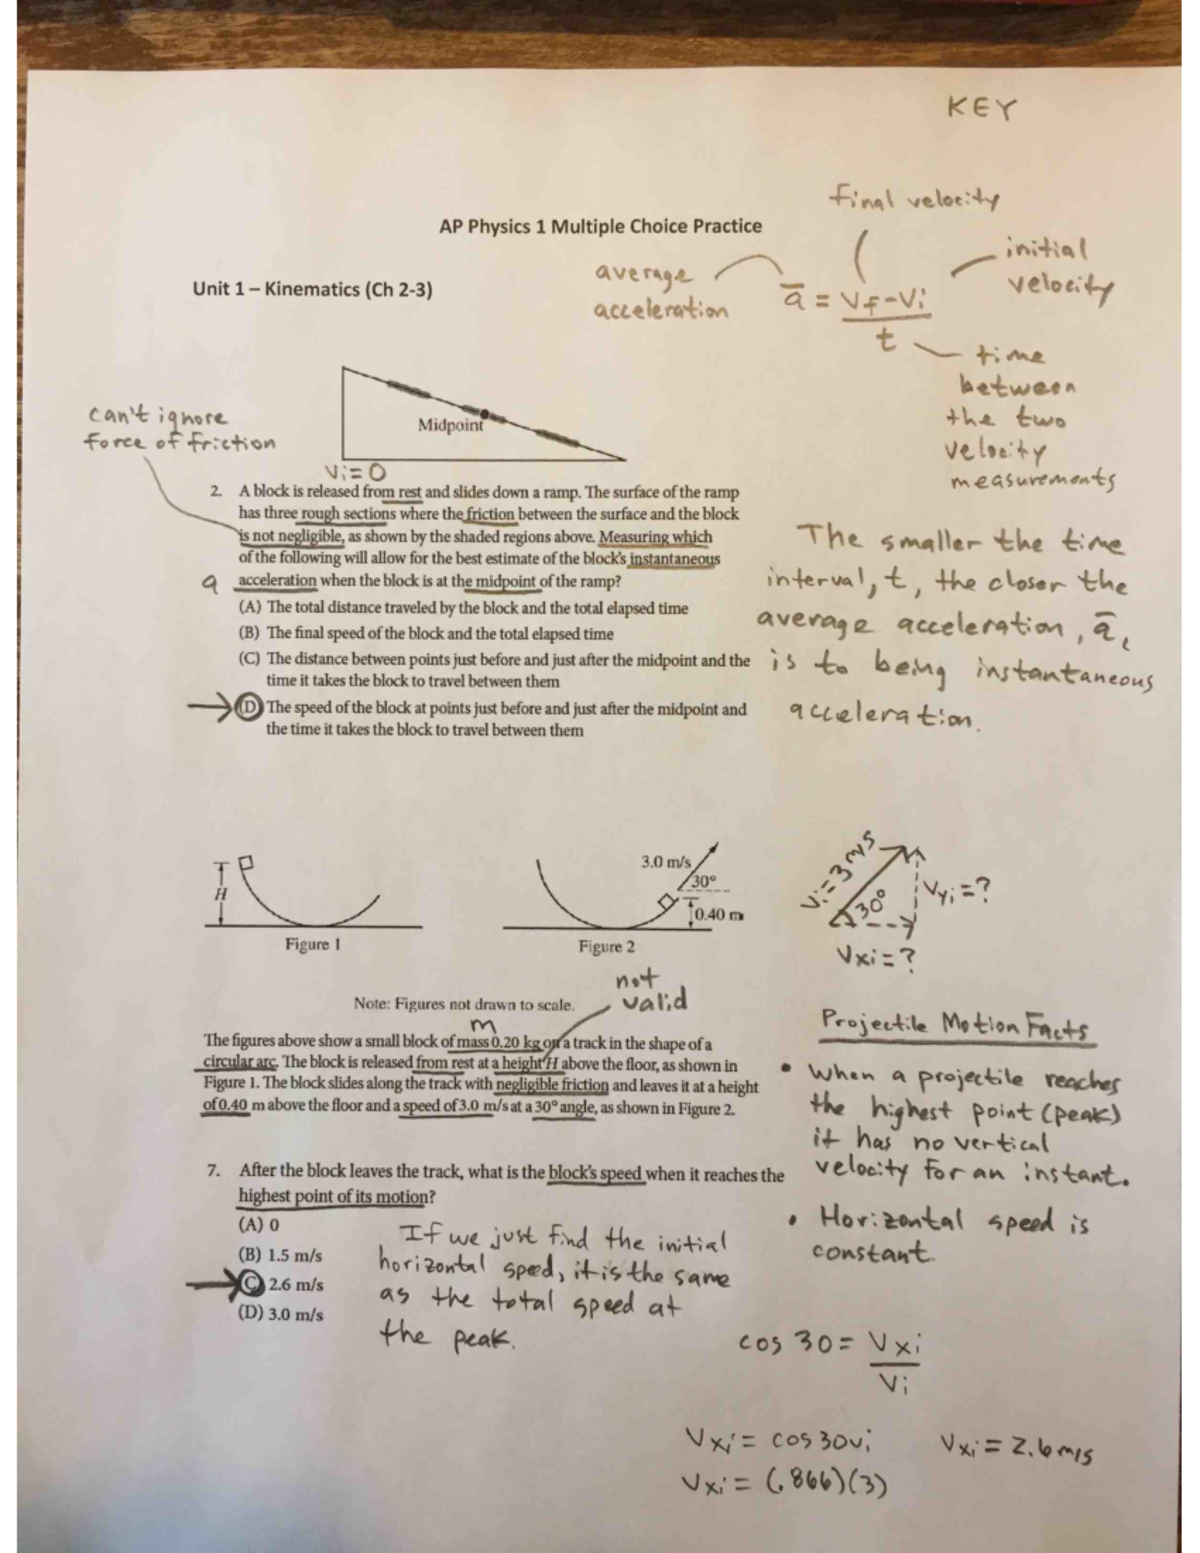 KEY
final velocity
AP Physics 1 Multiple Choice Practice
average
acceleration
a̅ = Vf-Vi
t
initial
velocity
Unit 1 – Kinematics (Ch 2-3)
time
between
the two
velocity
measurements
can't ignore
force of friction
Midpoint
Vi=0
2. A block is released from rest and slides down a ramp. The surface of the ramp
has three rough sections where the friction between the surface and the block
is not negligible, as shown by the shaded regions above. Measuring which
of the following will allow for the best estimate of the block's instantaneous
a acceleration when the block is at the midpoint of the ramp?
(A) The total distance traveled by the block and the total elapsed time
(B) The final speed of the block and the total elapsed time
(C) The distance between points just before and just after the midpoint and the
time it takes the block to travel between them
(D) The speed of the block at points just before and just after the midpoint and
the time it takes the block to travel between them
The smaller the time
interval, t, the closer the
average acceleration, a̅,
is to being instantaneous
acceleration.
H
Figure 1
3.0 m/s
30°
0.40 m
Figure 2
Vi=3m/s
30°
Vyi=?
Vxi=?
not
valid
Note: Figures not drawn to scale.
m
The figures above show a small block of mass 0.20 kg on a track in the shape of a
circular arc. The block is released from rest at a height H above the floor, as shown in
Figure 1. The block slides along the track with negligible friction and leaves it at a height
of 0.40 m above the floor and a speed of 3.0 m/s at a 30° angle, as shown in Figure 2.
Projectile Motion Facts
• When a projectile reaches
the highest point (peak)
it has no vertical
velocity for an instant.
• Horizontal speed is
constant.
7. After the block leaves the track, what is the block's speed when it reaches the
highest point of its motion?
(A) 0
(B) 1.5 m/s
(C) 2.6 m/s
(D) 3.0 m/s
If we just find the initial
horizontal speed, it is the same
as the total speed at
the peak.
cos 30 = Vxi
Vi
Vxi = cos30vi
Vxi = 2.6m/s
Vxi = (.866)(3)